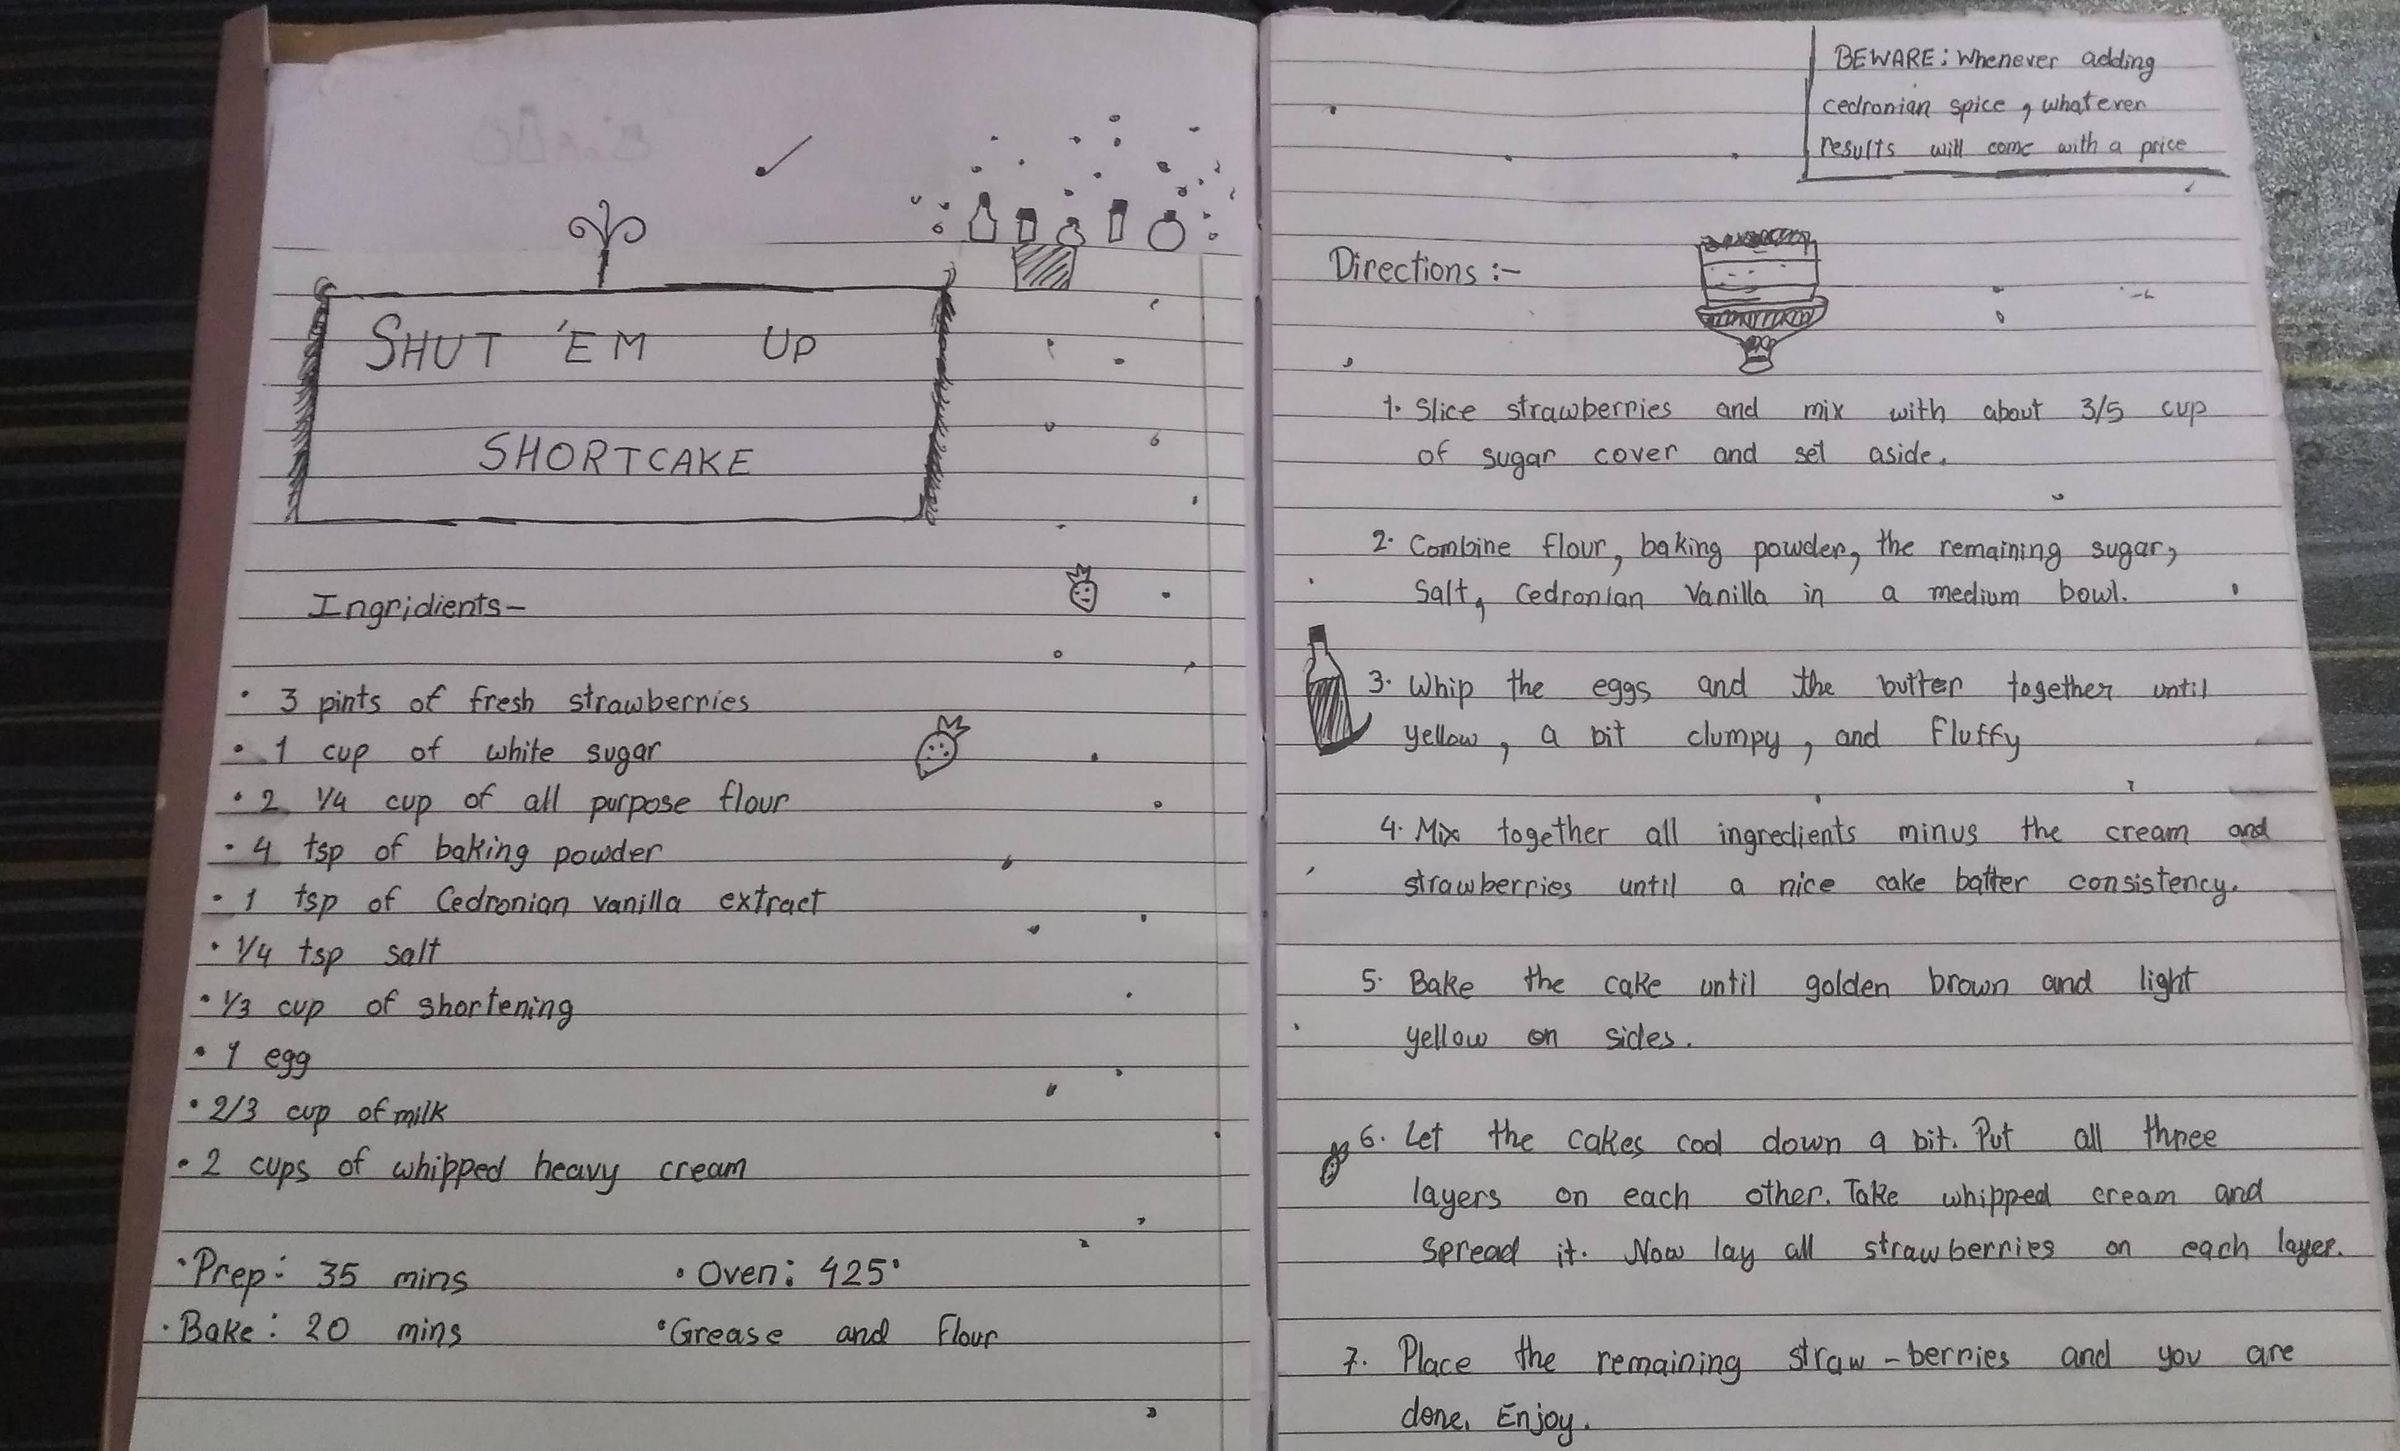 SHUT 'EM UP
SHORTCAKE
Ingridients-
• 3 pints of fresh strawberries
• 1 cup of white sugar
• 2 1/4 cup of all purpose flour
• 4 tsp of baking powder
• 1 tsp of Cedronian vanilla extract
• 1/4 tsp salt
• 1/3 cup of shortening
• 1 egg
• 2/3 cup of milk
• 2 cups of whipped heavy cream
• Prep: 35 mins
• Oven: 425°
• Bake: 20 mins
• Grease and Flour
BEWARE: Whenever adding
cedronian spice, whatever
results will come with a price
Directions :-
1. Slice strawberries and mix with about 3/5 cup
of sugar cover and set aside.
2. Combine flour, baking powder, the remaining sugar,
Salt, Cedronian Vanilla in a medium bowl.
3. Whip the eggs and the butter together until
yellow, a bit clumpy, and fluffy
4. Mix together all ingredients minus the cream and
strawberries until a nice cake batter consistency.
5. Bake the cake until golden brown and light
yellow on sides.
6. Let the cakes cool down a bit. Put all three
layers on each other. Take whipped cream and
spread it. Now lay all strawberries on each layer.
7. Place the remaining straw-berries and you are
done. Enjoy.